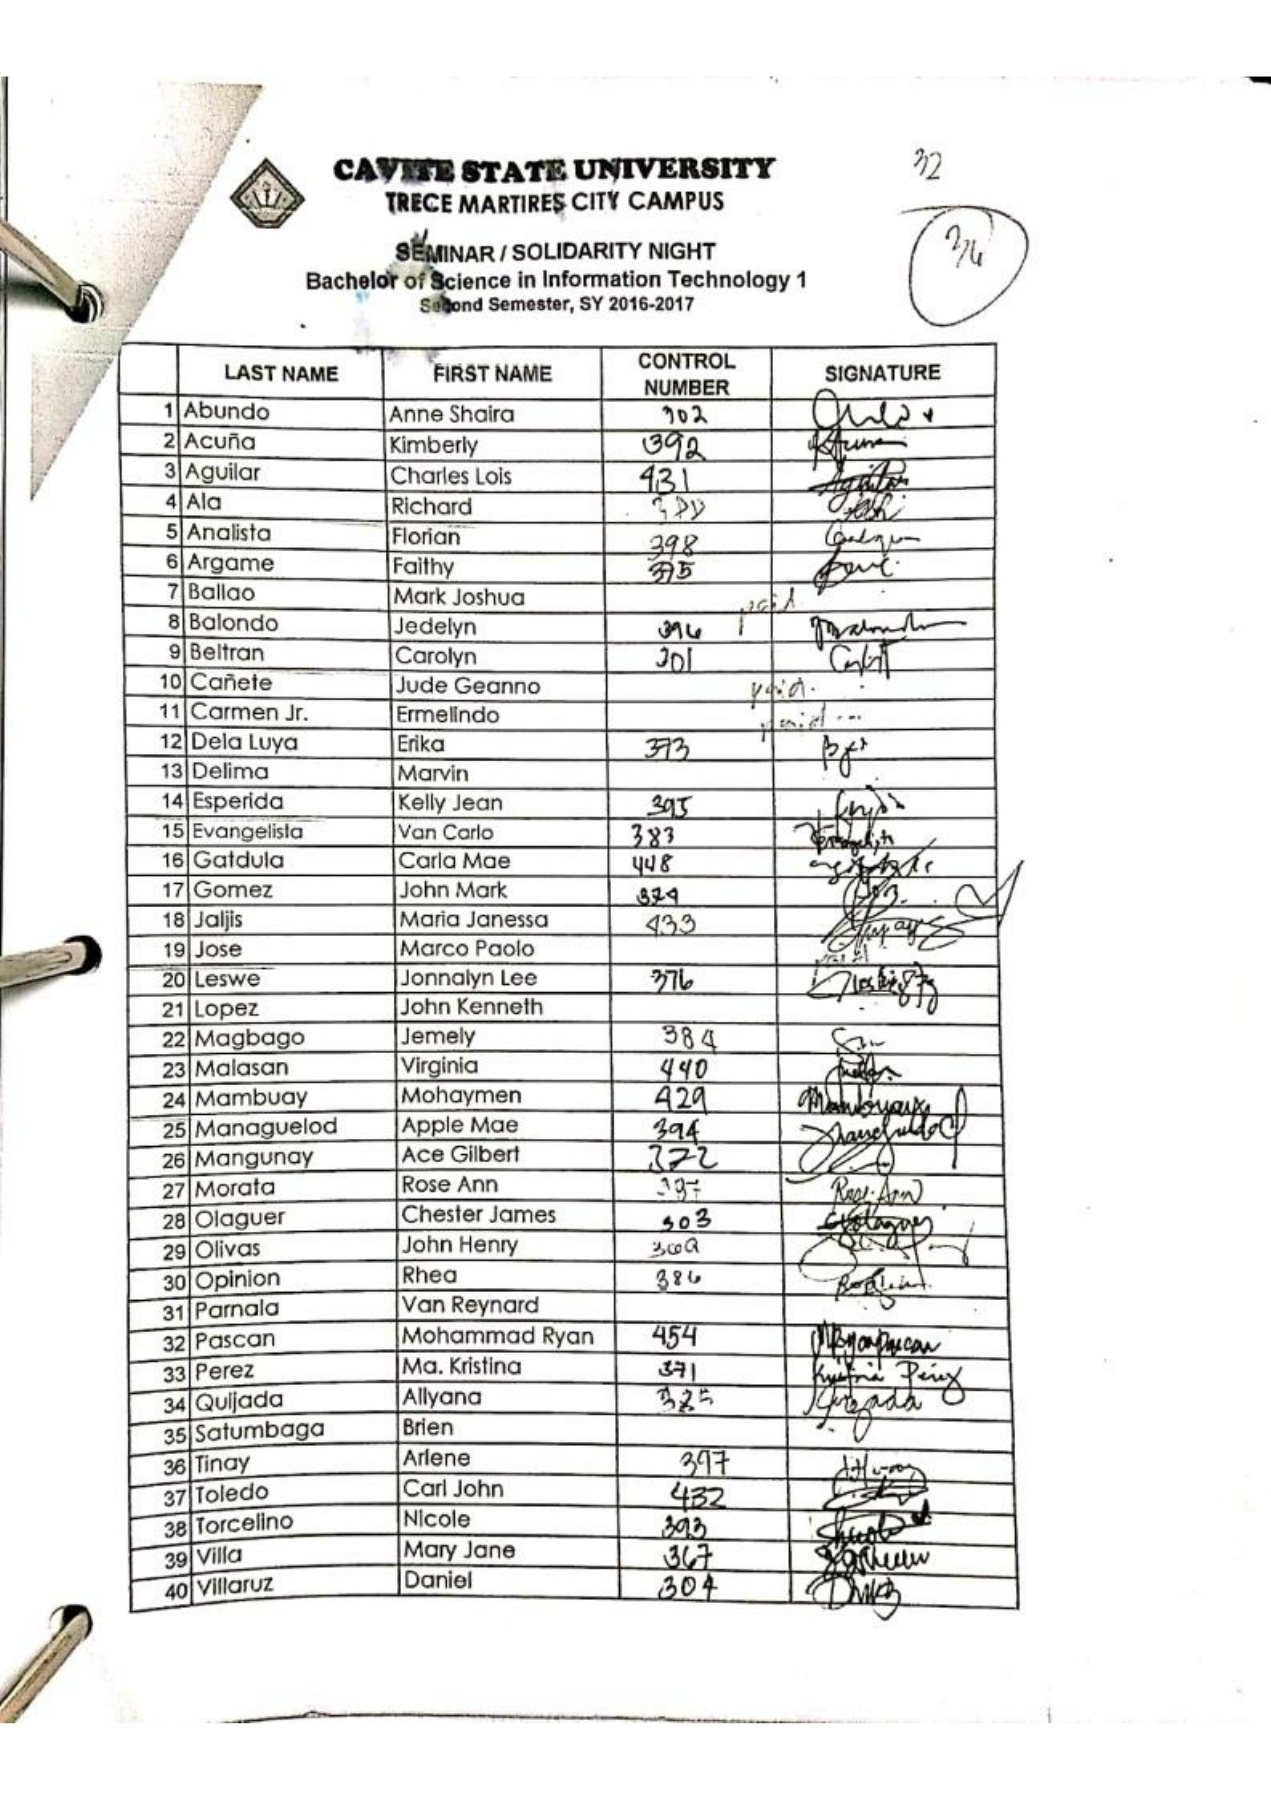 32
CAVITE STATE UNIVERSITY
TRECE MARTIRES CITY CAMPUS
36
SEMINAR / SOLIDARITY NIGHT
Bachelor of Science in Information Technology 1
Second Semester, SY 2016-2017
LAST NAME FIRST NAME CONTROL NUMBER SIGNATURE
1 Abundo Anne Shaira 302
2 Acuña Kimberly 392
3 Aguilar Charles Lois 431 Aguilar
4 Ala Richard
5 Analista Florian 398
6 Argame Faithy 375
7 Ballao Mark Joshua paid
8 Balondo Jedelyn 396
9 Beltran Carolyn 301
10 Cañete Jude Geanno paid.
11 Carmen Jr. Ermelindo paid
12 Dela Luya Erika 373
13 Delima Marvin
14 Esperida Kelly Jean 395
15 Evangelista Van Carlo 383
16 Gatdula Carla Mae 448
17 Gomez John Mark 374
18 Jaljis Maria Janessa 433
19 Jose Marco Paolo paid
20 Leswe Jonnalyn Lee 376
21 Lopez John Kenneth
22 Magbago Jemely 384
23 Malasan Virginia 440
24 Mambuay Mohaymen 429 Mambuay
25 Managuelod Apple Mae 394
26 Mangunay Ace Gilbert 372
27 Morata Rose Ann Rose Ann
28 Olaguer Chester James 303
29 Olivas John Henry
30 Opinion Rhea 386
31 Parnala Van Reynard
32 Pascan Mohammad Ryan 454
33 Perez Ma. Kristina 371 Kristina Perez
34 Quijada Allyana Quijada
35 Satumbaga Brien
36 Tinay Arlene 397
37 Toledo Carl John 432
38 Torcelino Nicole 393
39 Villa Mary Jane 367
40 Villaruz Daniel 304